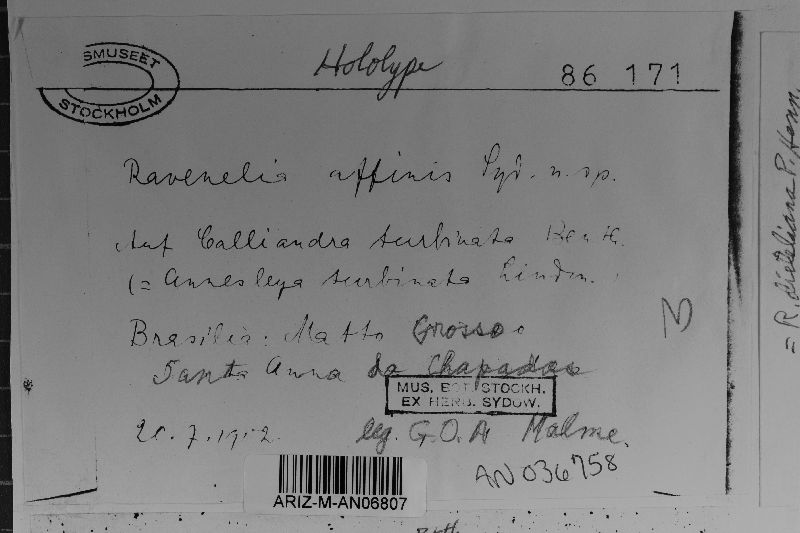 SMUSEET
STOCKHOLM
Holotype
86 171
Ravenelia affinis Syd. n. sp.
Auf Calliandra turbinata Benth.
(= Annesleya turbinata Lindm.)
Brasilia: Matto Grosso
Santa Anna da Chapada
MUS. BOT. STOCKH.
EX HERB. SYDOW.
leg. G. O. A. Malme.
AN 036758
ARIZ-M-AN06807
= R. dieteliana P. Henn.